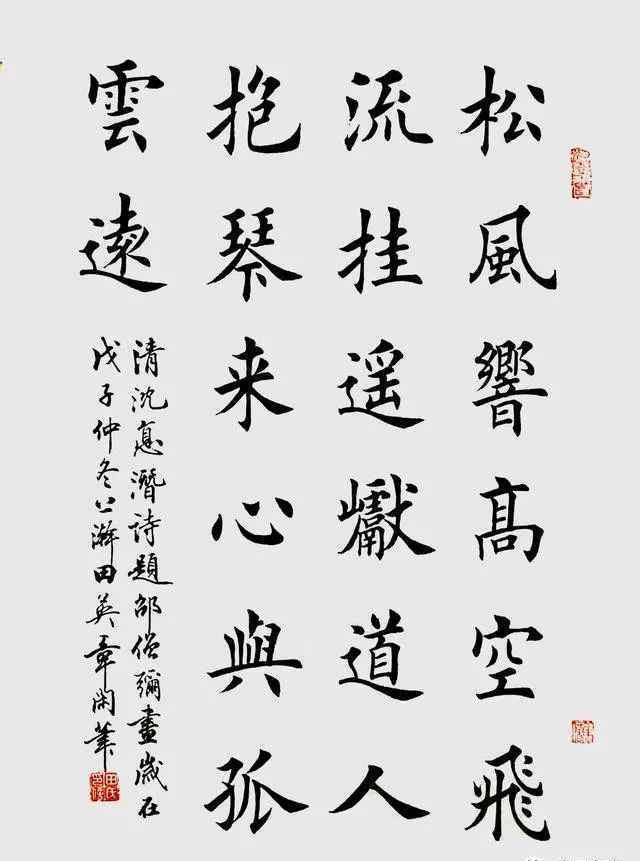 松風響髙空飛
流挂遥巘道人
抱琴来心與孤
雲遠
清沈悳潛詩題邵僧彌畫歲在
戊子仲冬澣田英章閑筆